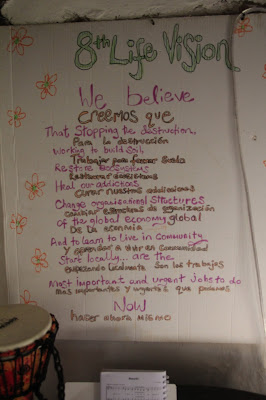 8th Life Vision
We believe
creemos que
That stopping the destruction,
Para la destrucción
Working to build soil,
Trabajar para formar suelo
Restore Ecosystems
Restaurar ecosistemas
Heal our addictions
Curar nuestras addicciones
Change organisational structures
estructuras de organización
of the global economy global
De la economia
And to learn to live in community
y aprender a vivir en comunidad
Start locally... are the
localmente son los trabajos
Most important and urgent jobs to do
mas importantes y urgentes que podemos
Now
hacer ahora mismo